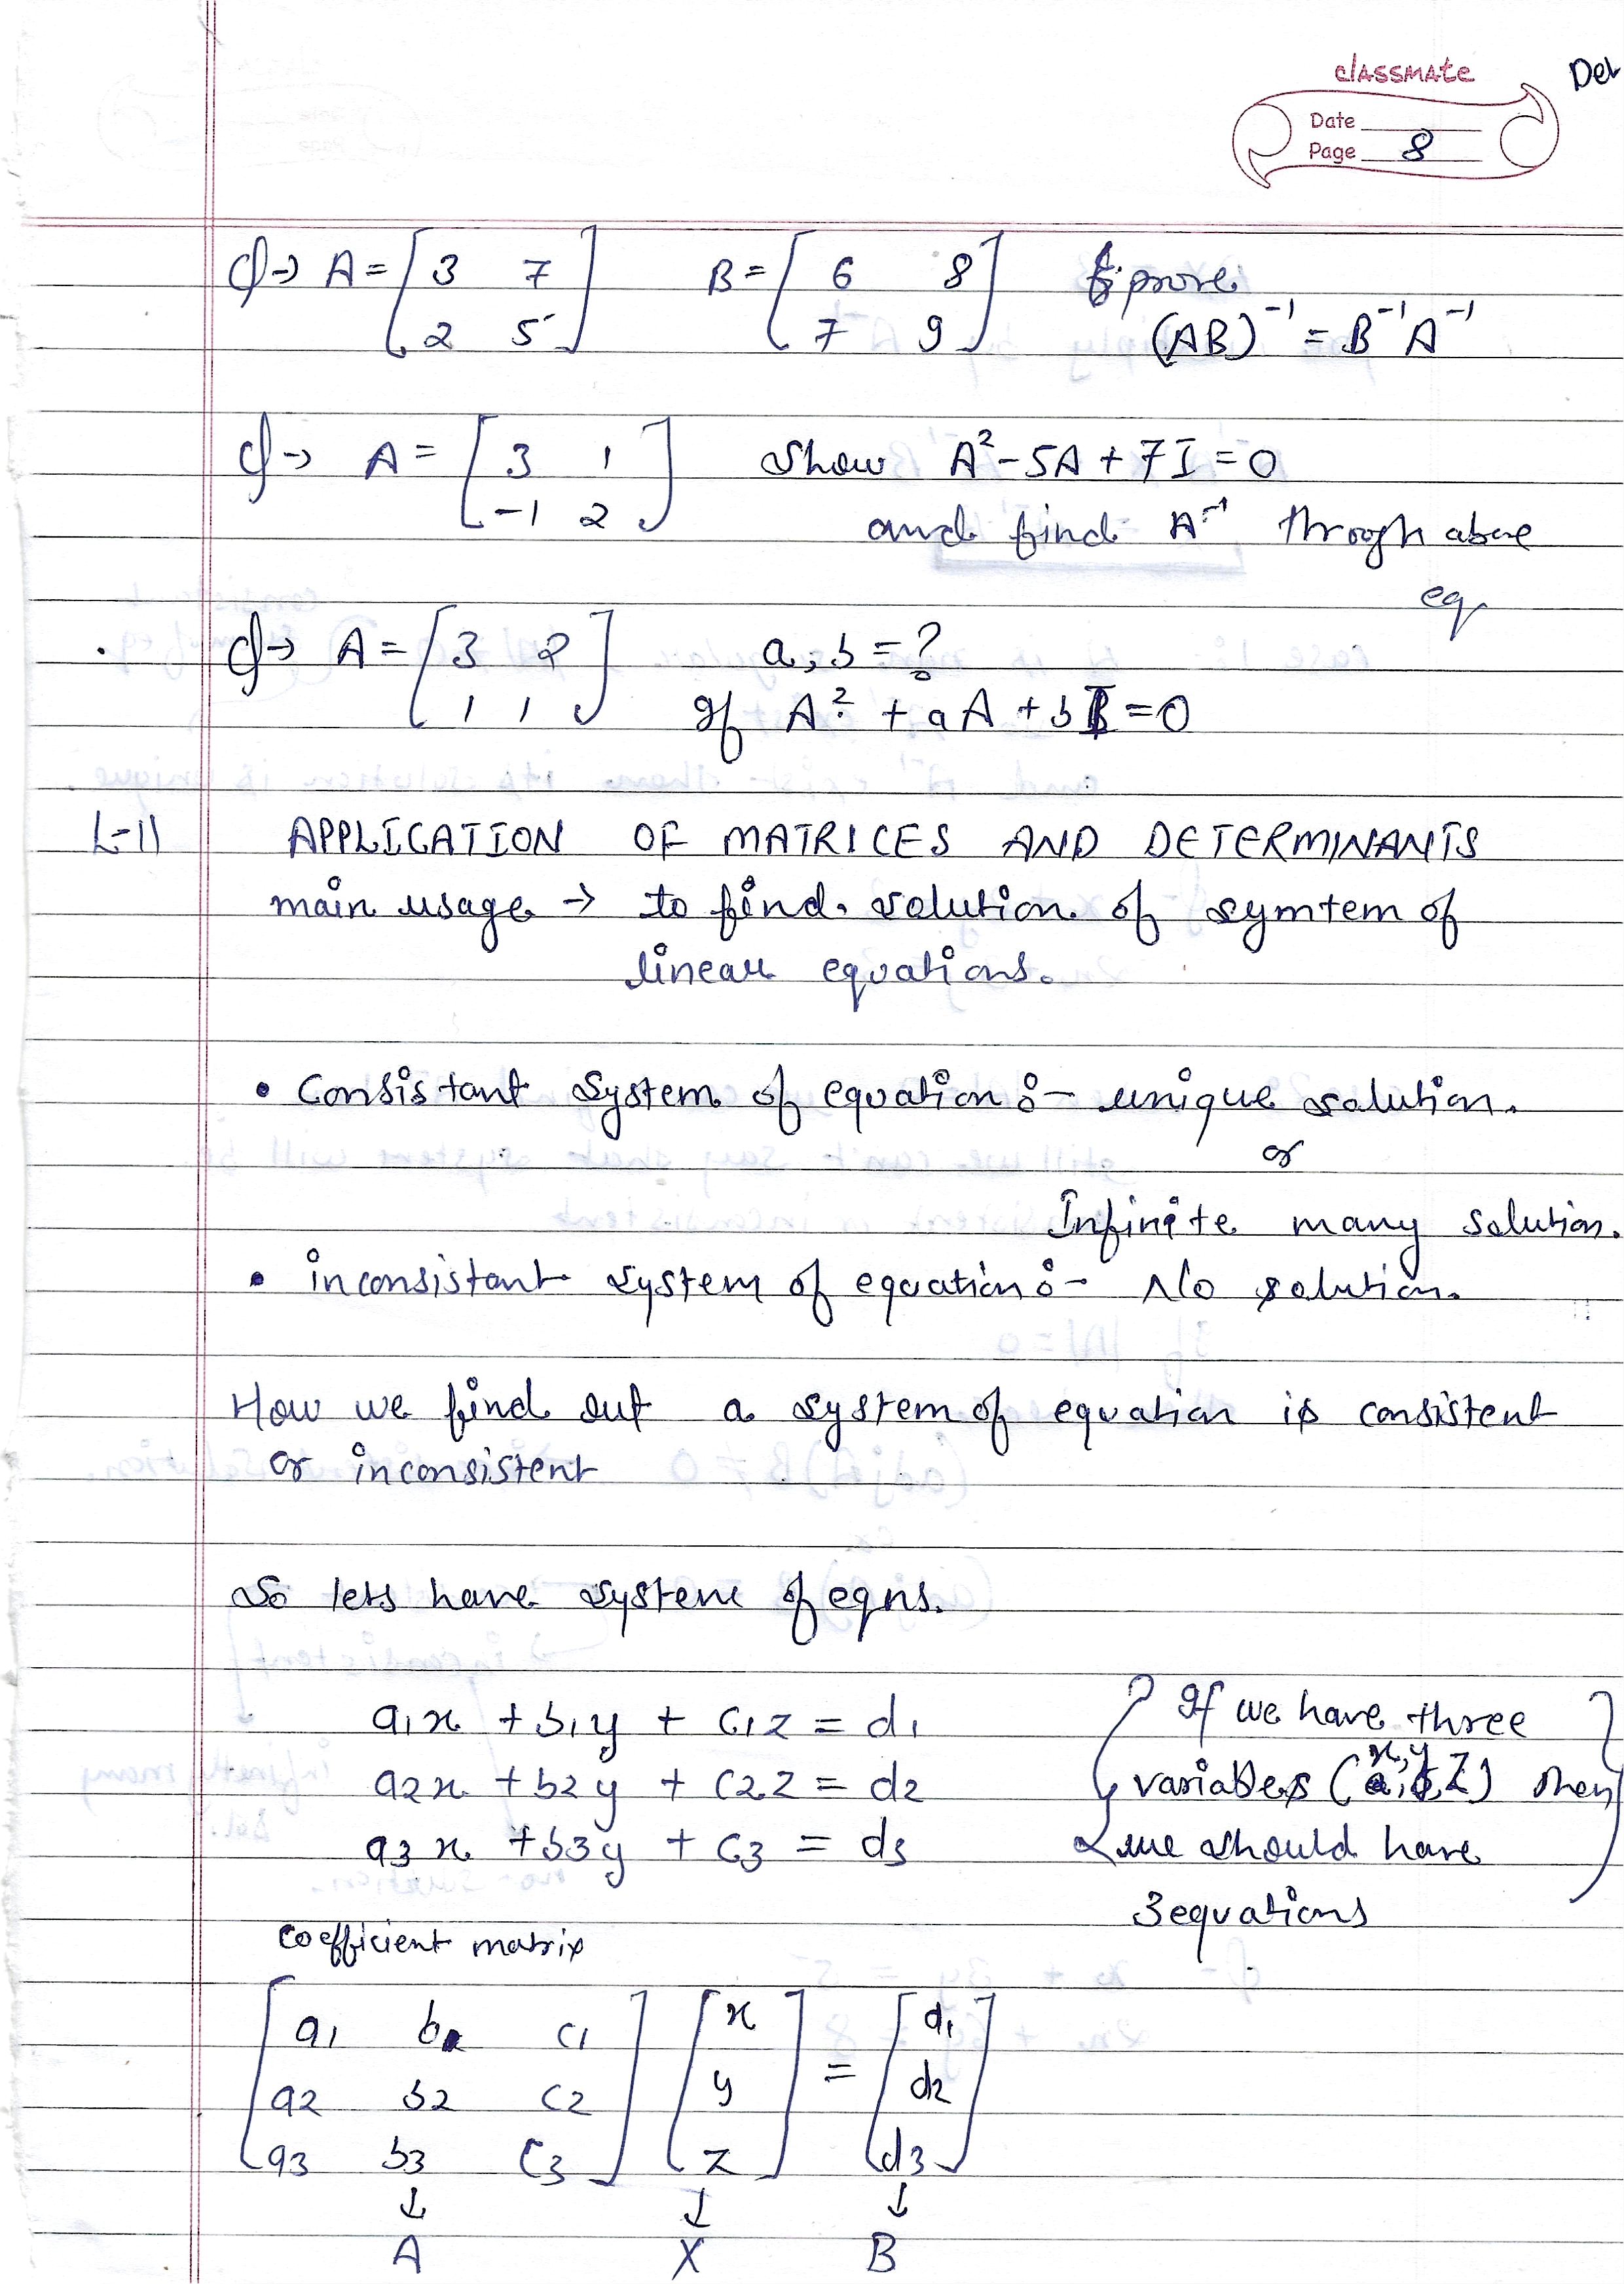 classmate
Det
Date
Page 8
Q→ A = [3 7 B = [6 8 prove
2 5] 7 9] (AB)⁻¹ = B⁻¹A⁻¹
Q→ A = [3 1 Show A² - 5A + 7I = 0
-1 2] and find A⁻¹ throogh above
eq
Q→ A = [3 2 a, b = ?
1 1] If A² + aA + bI = 0
L-11 APPLICATION OF MATRICES AND DETERMINANTS
main usage → to find solution of symtem of
linear equations.
• Consistant System of equation :- unique solution.
or
Infinite many solution.
• inconsistant system of equation :- No solution.
How we find out a system of equation is consistent
or inconsistent
So lets have system of eqns.
a1x + b1y + c1z = d1 { If we have three }
a2x + b2y + c2z = d2 variables (x,y,Z) then
a3x + b3y + c3 = d3 we should have
3 equations
coefficient matrix
[a1 b1 c1] [x] = [d1]
a2 b2 c2 y d2
a3 b3 c3 z d3
↓ ↓ ↓
A X B